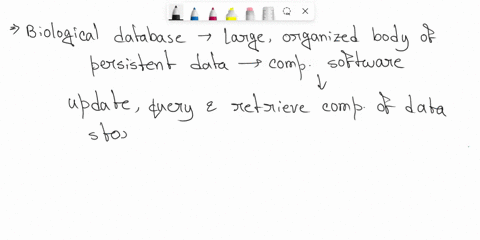 ⇒ Biological database → large, organized body of
persistent data → comp. software
↓
update, query & retrieve comp. of data
sto